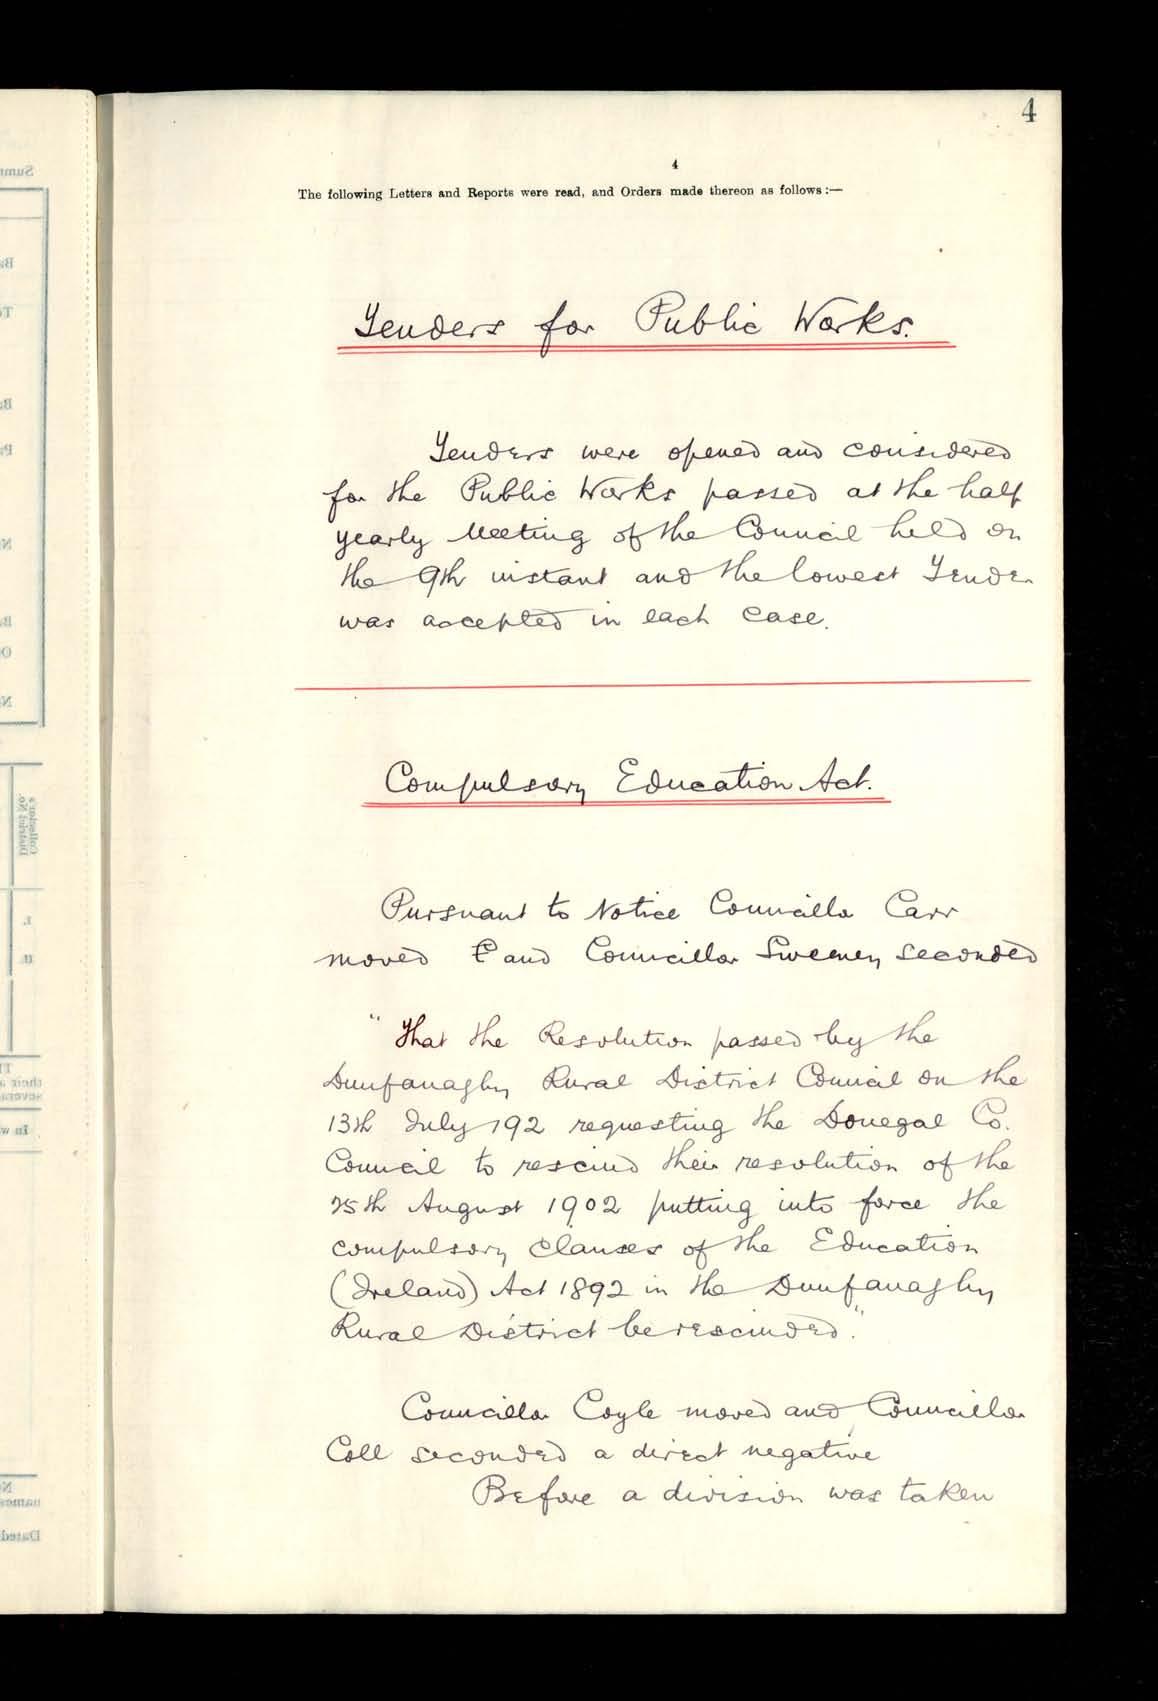 4
4
The following Letters and Reports were read, and Orders made thereon as follows :—
Tenders for Public Works.
Tenders were opened and considered
for the Public Works passed at the half
yearly Meeting of the Council held on
the 9th instant and the lowest Tender
was accepted in each case.
Compulsory Education Act.
Pursuant to Notice Councillor Carr
moved and Councillor Sweeney seconded
"That the Resolution passed by the
Dunfanaghy Rural District Council on the
13th July 192 requesting the Donegal Co.
Council to rescind their resolution of the
25th August 1902 putting into force the
compulsory clauses of the Education
(Ireland) Act 1892 in the Dunfanaghy
Rural District be rescinded."
Councillor Coyle moved and Councillor
Coll seconded a direct negative
Before a division was taken